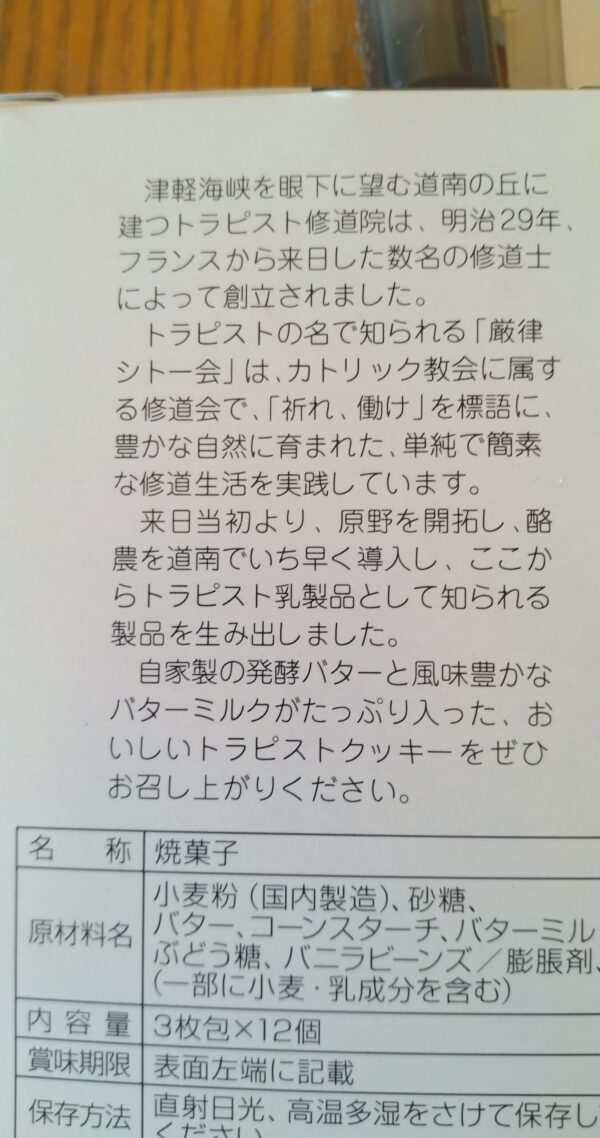 津軽海峡を眼下に望む道南の丘に
建つトラピスト修道院は、明治29年、
フランスから来日した数名の修道士
によって創立されました。
トラピストの名で知られる「厳律
シトー会」は、カトリック教会に属す
る修道会で、「祈れ、働け」を標語に、
豊かな自然に育まれた、単純で簡素
な修道生活を実践しています。
来日当初より、原野を開拓し、酪
農を道南でいち早く導入し、ここか
らトラピスト乳製品として知られる
製品を生み出しました。
自家製の発酵バターと風味豊かな
バターミルクがたっぷり入った、お
いしいトラピストクッキーをぜひ
お召し上がりください。
名称 焼菓子
原材料名 小麦粉(国内製造)、砂糖、
バター、コーンスターチ、バターミル
ぶどう糖、バニラビーンズ/膨脹剤、
(一部に小麦・乳成分を含む)
内容量 3枚包×12個
賞味期限 表面左端に記載
保存方法 直射日光、高温多湿をさけて保存し
ください